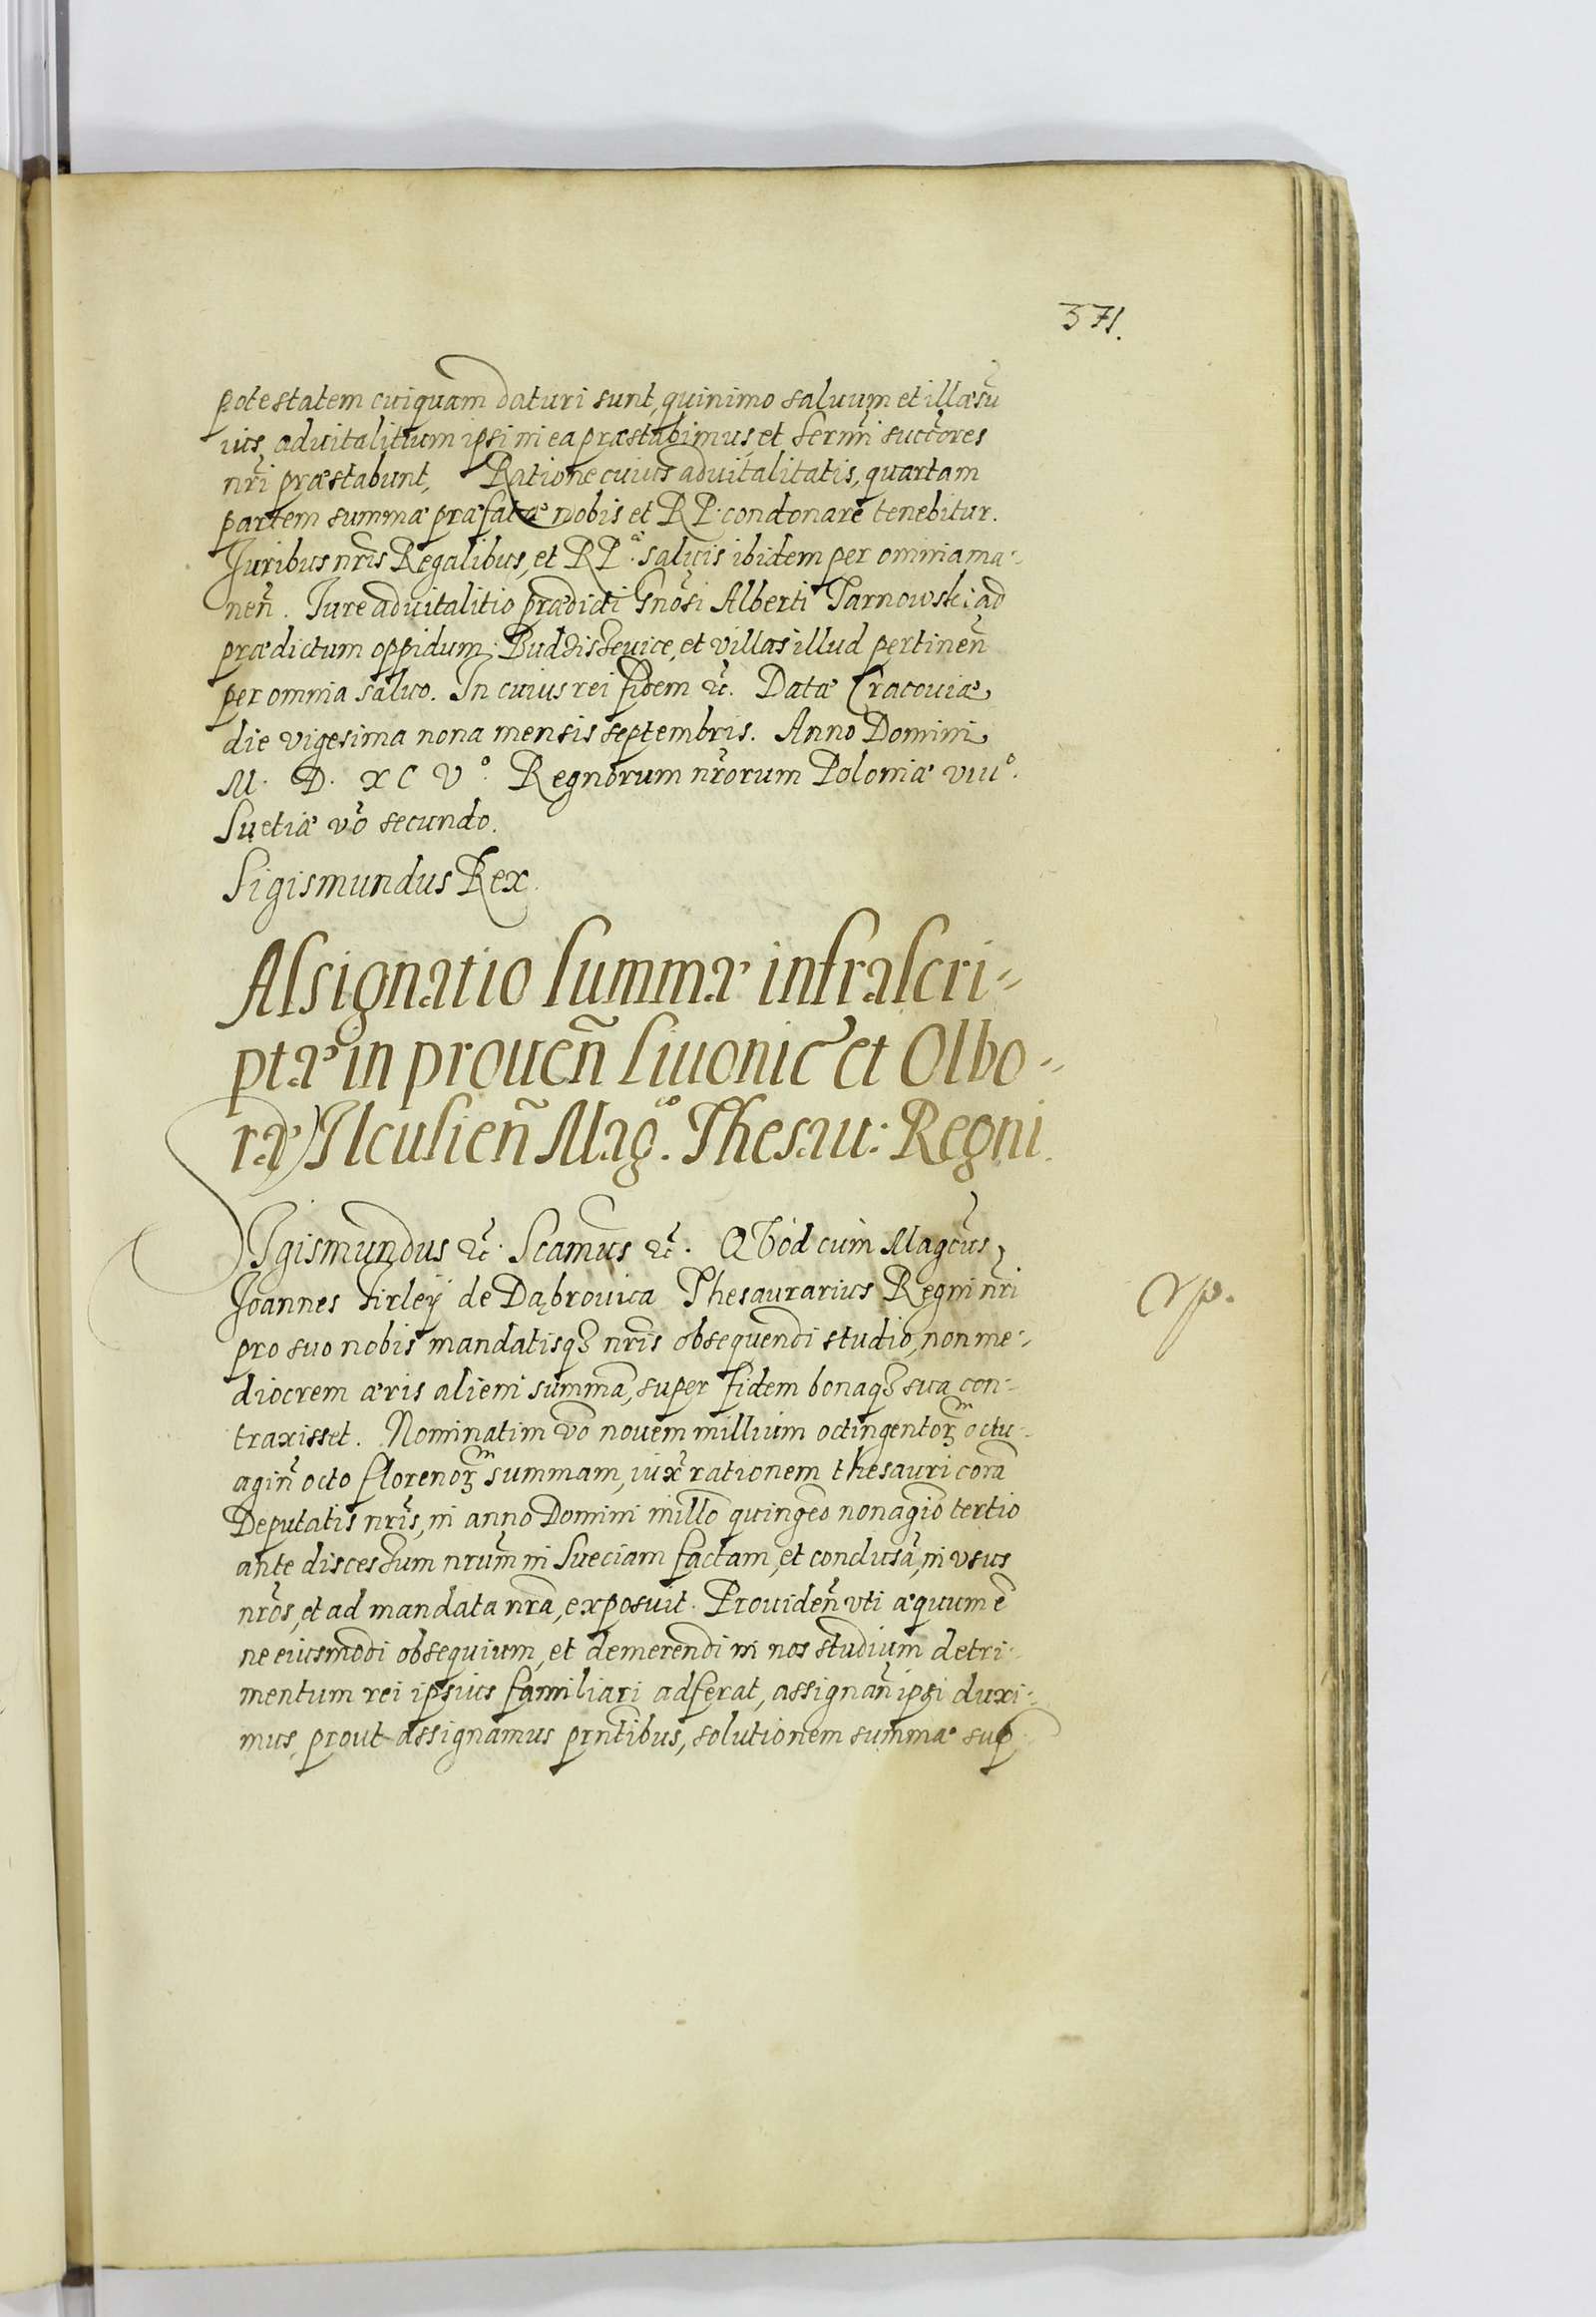 371.
potestatem cuiquam daturi sunt, quinimo saluum et illæsũ
ius aduitalitium ipsi in ea præstabimus, et Serm̃i succ̃ores
nr̃i præstabunt, Ratione cuius aduitalitatis, quartam
partem summæ præfatæ nobis et RP. condonare tenebitur.
Juribus nr̃is Regalibus, et RPᵃ. saluis ibidem per omnia ma-
neñ. Jure aduitalitio prædicti Gnõsi Alberti Tarnowski ad
prædictum oppidum Budzisževice, et villas illud pertineñ
per omnia saluo. In cuius rei fidem ꝛc̃. Datæ Cracouiæ
die vigesima nona mensis septembris. Anno Domini
M. D. XC Vº. Regnorum nr̃orum Poloniæ viiiº.
Suetiæ võ secundo.
Sigismundus Rex.
Assignatio summæ infrascri-
ptæ in proueñ Liuonic̃ et Olbo-
ræ Ilcusieñ Magᶜᵒ. Thesau: Regni.
SIgismundus ꝛc̃. Scamus ꝛc̃. QVod cum Magc̃us
Joannes Firleÿ de Dąbrouica Thesaurarius Regni nr̃i
pro suo nobis mandatisqꝫ nr̃is obsequendi studio, non me-
diocrem æris alieni summã, super fidem bonaqꝫ sua con-
traxisset. Nominatim võ nouem millium octingentoꝝᵐ octu-
agiñ octo florenoꝝᵐ summam, iux̃ rationem thesauri corã
Deputatis nr̃is, in anno Domini millõ quingẽo nonagiõ tertio
ante discessum nr̃um in Sueciam factam, et conclusã, in vsus
nr̃os, et ad mandata nr̃a, exposuit. Prouideñ vti æquum ẽ
ne eiusmodi obsequium, et demerendi in nos studium detri-
mentum rei ipsius familiari adferat, assignañ ipsi duxi-
mus, prout assignamus prñtibus, solutionem summæ sup